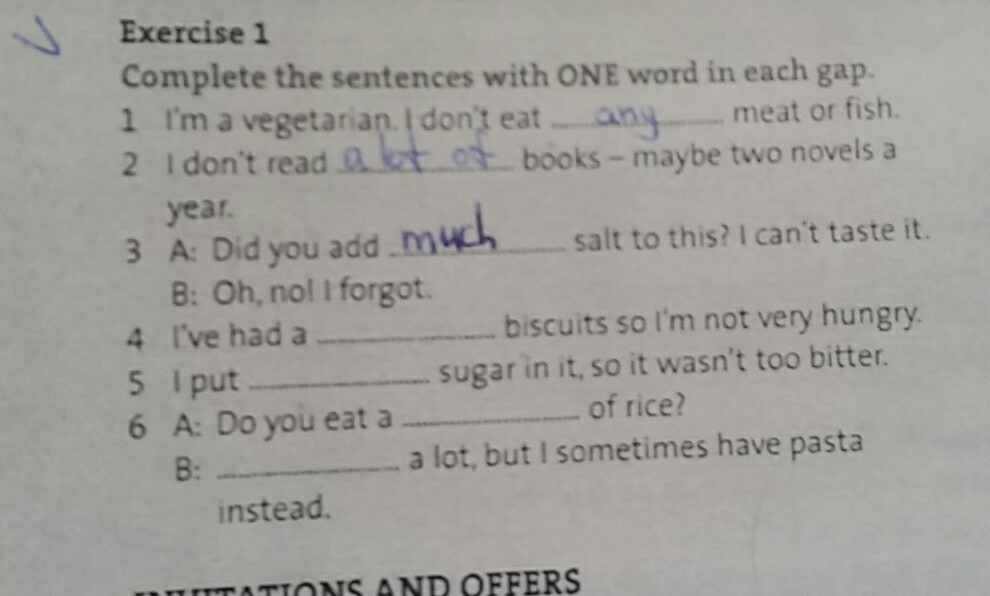 Exercise 1
Complete the sentences with ONE word in each gap.
1 I'm a vegetarian. I don't eat any meat or fish.
2 I don't read a lot of books – maybe two novels a
year.
3 A: Did you add much salt to this? I can't taste it.
B: Oh, no! I forgot.
4 I've had a ____________ biscuits so I'm not very hungry.
5 I put ____________ sugar in it, so it wasn't too bitter.
6 A: Do you eat a ____________ of rice?
B: ____________ a lot, but I sometimes have pasta
instead.
INVITATIONS AND OFFERS